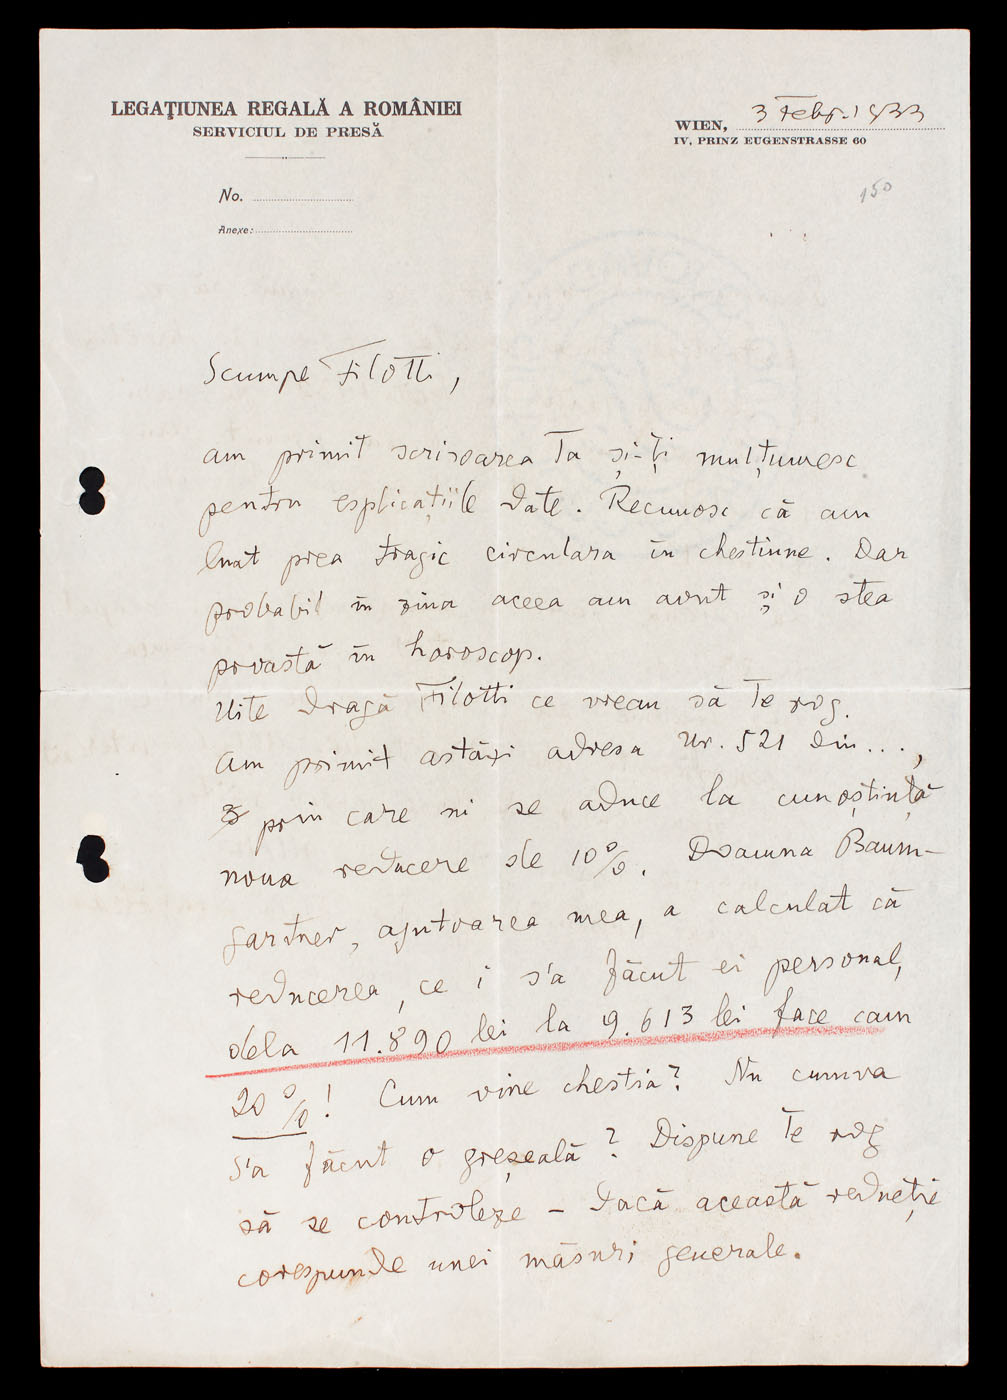 LEGAŢIUNEA REGALĂ A ROMÂNIEI
SERVICIUL DE PRESĂ
No.
Anexe:
3 Febr. 1933
WIEN,
IV, PRINZ EUGENSTRASSE 60
150
Scumpe Filotti,
am primit scrisoarea Ta și-ți mulțumesc
pentru esplicațiile date. Recunosc că am
luat prea tragic circulara în chestiune. Dar
probabil în ziua aceea am avut și o stea
proastă în horoscop.
Uite dragă Filotti ce vreau să Te rog.
Am primit astăzi adresa Nr. 521 din...,
prin care ni se aduce la cunoștință
noua reducere de 10%. Doamna Baum-
gartner, ajutoarea mea, a calculat că
reducerea, ce i s'a făcut ei personal,
dela 11.890 lei la 9.613 lei face cam
20%! Cum vine chestia? Nu cumva
s'a făcut o greșeală? Dispune Te rog
să se controleze – dacă această reducție
corespunde unei măsuri generale.